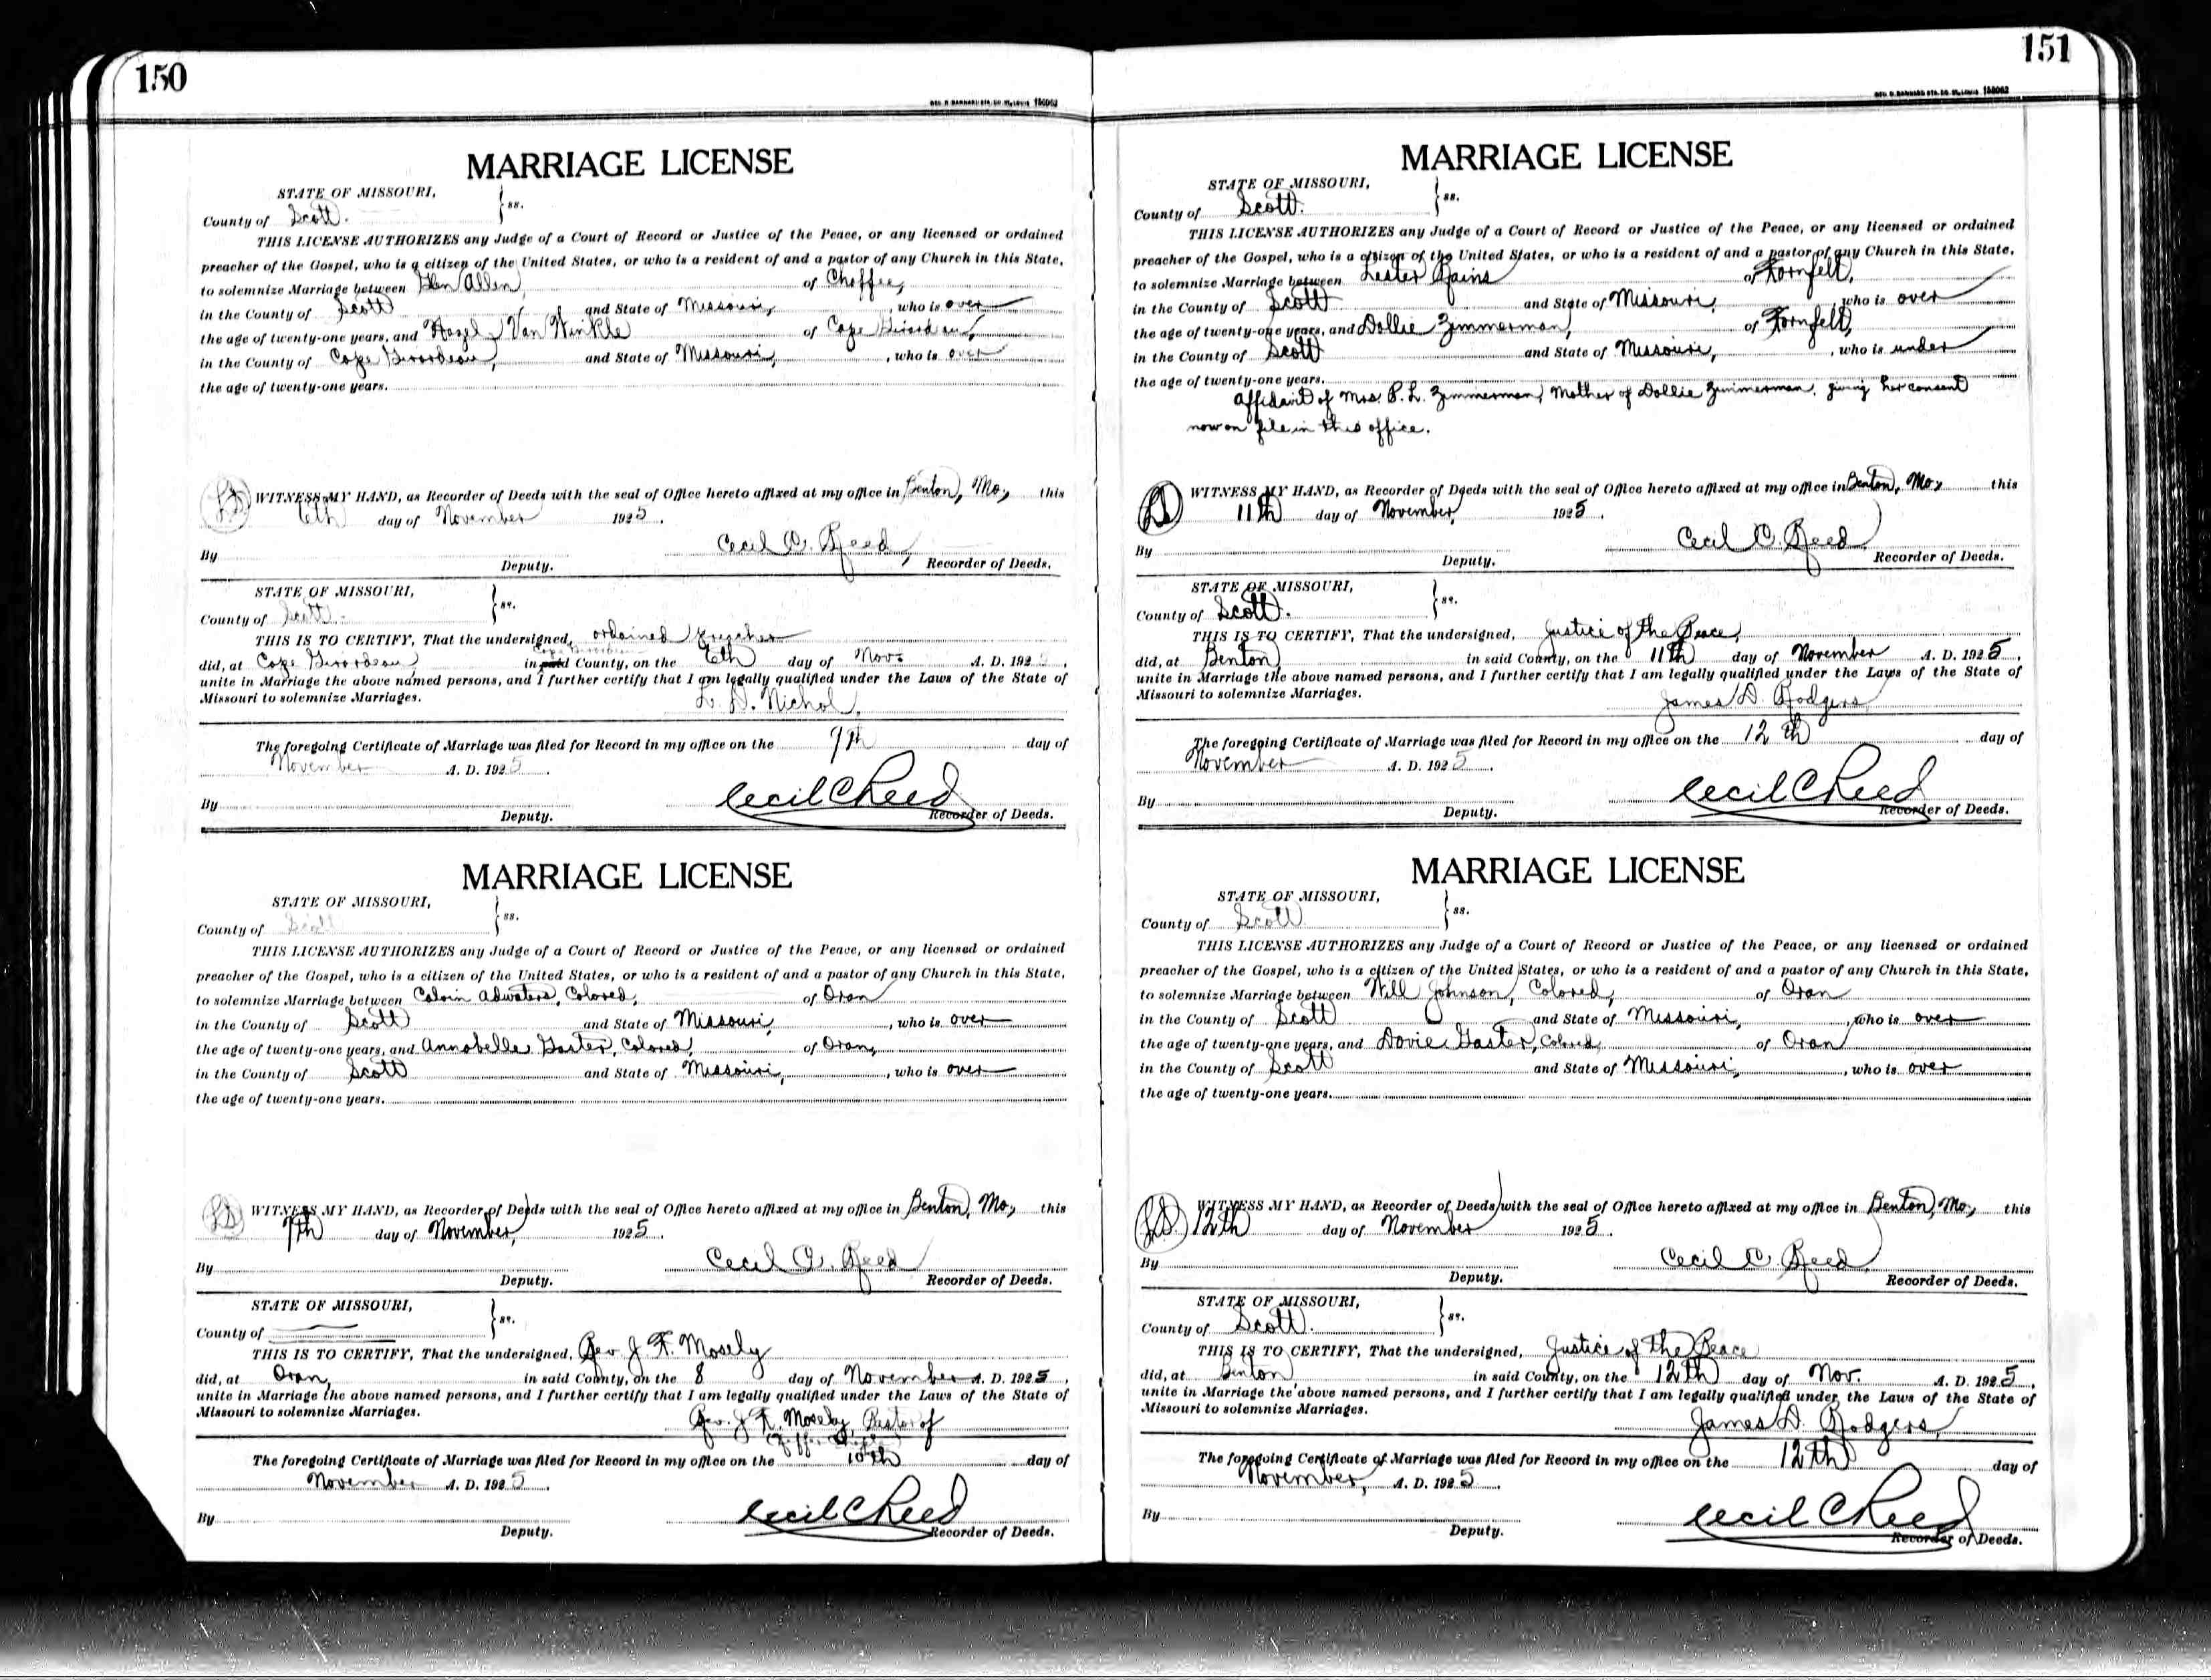 150
GEO. D. BARNARD STA. CO. ST. LOUIS 156063
MARRIAGE LICENSE
STATE OF MISSOURI,
County of Scott. } ss.
THIS LICENSE AUTHORIZES any Judge of a Court of Record or Justice of the Peace, or any licensed or ordained
preacher of the Gospel, who is a citizen of the United States, or who is a resident of and a pastor of any Church in this State,
to solemnize Marriage between Glen Allen of Chaffee,
in the County of Scott and State of Missouri, , who is over
the age of twenty-one years, and Hazel Van Winkle of Cape Girardeau,
in the County of Cape Girardeau, and State of Missouri, , who is over
the age of twenty-one years.
WITNESS MY HAND, as Recorder of Deeds with the seal of Office hereto affixed at my office in Benton, Mo, this
6th day of November 1925.
Cecil C. Reed,
By Deputy. Recorder of Deeds.
STATE OF MISSOURI,
County of Scott. } ss.
THIS IS TO CERTIFY, That the undersigned, ordained preacher
Cape Girardeau
did, at Cape Girardeau in said County, on the 6th day of Nov. A. D. 1925,
unite in Marriage the above named persons, and I further certify that I am legally qualified under the Laws of the State of
Missouri to solemnize Marriages. L. D. Nichol,
The foregoing Certificate of Marriage was filed for Record in my office on the 9th day of
November A. D. 1925.
Cecil C Reed
By Deputy. Recorder of Deeds.
MARRIAGE LICENSE
STATE OF MISSOURI,
County of Scott } ss.
THIS LICENSE AUTHORIZES any Judge of a Court of Record or Justice of the Peace, or any licensed or ordained
preacher of the Gospel, who is a citizen of the United States, or who is a resident of and a pastor of any Church in this State,
to solemnize Marriage between Calvin Adwaters, Colored, of Oran
in the County of Scott and State of Missouri, , who is over
the age of twenty-one years, and Annabelle Gaster, Colored, of Oran,
in the County of Scott and State of Missouri, , who is over
the age of twenty-one years.
WITNESS MY HAND, as Recorder of Deeds with the seal of Office hereto affixed at my office in Benton, Mo, this
7th day of November, 1925.
Cecil C. Reed
By Deputy. Recorder of Deeds.
STATE OF MISSOURI,
County of } ss.
THIS IS TO CERTIFY, That the undersigned, Rev J. F. Mosely
did, at Oran, in said County, on the 8 day of November A. D. 1925,
unite in Marriage the above named persons, and I further certify that I am legally qualified under the Laws of the State of
Missouri to solemnize Marriages. Rev. J. F. Mosely, Pastor of
The foregoing Certificate of Marriage was filed for Record in my office on the 10th day of
November A. D. 1925.
Cecil C Reed
By Deputy. Recorder of Deeds.
151
GEO. D. BARNARD STA. CO. ST. LOUIS 156063
MARRIAGE LICENSE
STATE OF MISSOURI,
County of Scott. } ss.
THIS LICENSE AUTHORIZES any Judge of a Court of Record or Justice of the Peace, or any licensed or ordained
preacher of the Gospel, who is a citizen of the United States, or who is a resident of and a pastor of any Church in this State,
to solemnize Marriage between Lester Rains of Fornfelt,
in the County of Scott and State of Missouri, , who is over
the age of twenty-one years, and Dollie Zimmerman, of Fornfelt,
in the County of Scott and State of Missouri, , who is under
the age of twenty-one years.
Affidavit of Mrs. P. L. Zimmerman, Mother of Dollie Zimmerman, giving her consent
now on file in this office.
WITNESS MY HAND, as Recorder of Deeds with the seal of Office hereto affixed at my office in Benton, Mo, this
11th day of November, 1925.
Cecil C. Reed
By Deputy. Recorder of Deeds.
STATE OF MISSOURI,
County of Scott. } ss.
THIS IS TO CERTIFY, That the undersigned, Justice of the Peace,
did, at Benton in said County, on the 11th day of November A. D. 1925,
unite in Marriage the above named persons, and I further certify that I am legally qualified under the Laws of the State of
Missouri to solemnize Marriages. James D. Rodgers
The foregoing Certificate of Marriage was filed for Record in my office on the 12th day of
November A. D. 1925.
Cecil C Reed
By Deputy. Recorder of Deeds.
MARRIAGE LICENSE
STATE OF MISSOURI,
County of Scott } ss.
THIS LICENSE AUTHORIZES any Judge of a Court of Record or Justice of the Peace, or any licensed or ordained
preacher of the Gospel, who is a citizen of the United States, or who is a resident of and a pastor of any Church in this State,
to solemnize Marriage between Will Johnson, Colored, of Oran
in the County of Scott and State of Missouri, , who is over
the age of twenty-one years, and Dovie Gaster, Colored, of Oran
in the County of Scott and State of Missouri, , who is over
the age of twenty-one years.
WITNESS MY HAND, as Recorder of Deeds with the seal of Office hereto affixed at my office in Benton, Mo, this
12th day of November 1925.
Cecil C Reed
By Deputy. Recorder of Deeds.
STATE OF MISSOURI,
County of Scott. } ss.
THIS IS TO CERTIFY, That the undersigned, Justice of the Peace
did, at Benton in said County, on the 12th day of Nov. A. D. 1925,
unite in Marriage the above named persons, and I further certify that I am legally qualified under the Laws of the State of
Missouri to solemnize Marriages. James D. Rodgers,
The foregoing Certificate of Marriage was filed for Record in my office on the 12th day of
November, A. D. 1925.
Cecil C Reed
By Deputy. Recorder of Deeds.